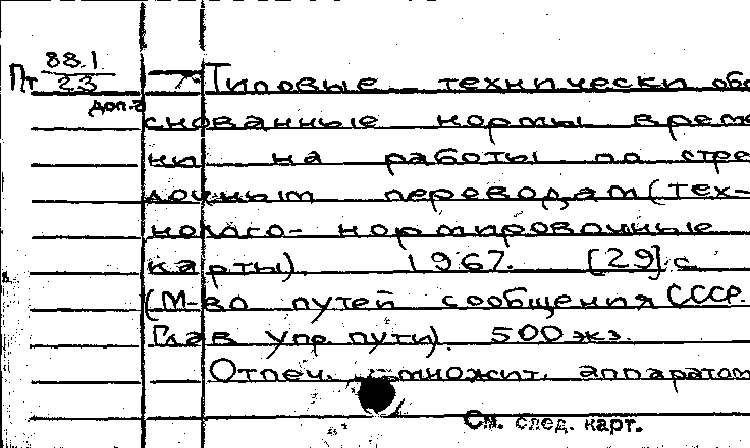 88.1
Пт 23
доп.
Типовые технически обо
снованные нормы време
ни на работы по стре
лочным переводам (тех-
нолого- нормировочные
карты). 1967. [29] с.
(М-во путей сообщения СССР.
Глав упр. пути). 500 экз.
Отпеч. множит. аппаратом
См. след. карт.